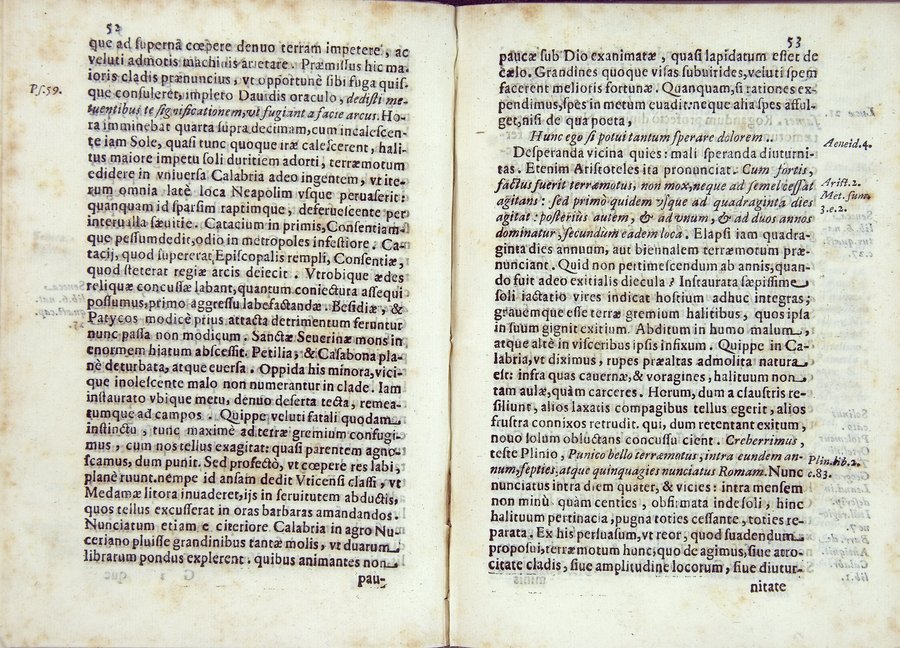 52
que ad supernã cœpere denuo terram impetere, ac
veluti admotis machinis arietare. Præmissus hic ma-
ioris cladis prænuncius, vt opportunè sibi fuga quis-
que consuleret, impleto Dauidis oraculo, dedisti me-
Ps. 59.
tuentibus te significationem, vt fugiant a facie arcus. Ho-
ra imminebat quarta supra decimam, cum incalescen-
te iam Sole, quasi tunc quoque iræ calescerent, hali-
tus maiore impetu soli duritiem adorti, terræmotum
edidere in vniuersa Calabria adeo ingentem, vt ite-
rum omnia latè loca Neapolim vsque peruaserit:
quanquam id sparsim raptimque, deferuescente per
interualla sæuitie. Catacium in primis, Consentiam-
que pessumdedit, odio in metropoles infestiore. Ca-
tacij, quod supererat Episcopalis templi, Consentiæ,
quod steterat regiæ arcis deiecit. Vtrobique ædes
reliquæ concussæ labant, quantum coniectura assequi
possumus, primo aggressu labefactandæ. Besidiæ, &
Patycos modicè prius attacta detrimentum feruntur
nunc passa non modicum. Sanctæ Seuerinæ mons in
enormem hiatum abscessit. Petilia, & Casabona pla-
nè deturbata, atque euersa. Oppida his minora, vici-
que inolescente malo non numerantur in clade. Iam
instaurato vbique metu, denuo deserta tecta, remea-
tumque ad campos. Quippe veluti fatali quodam
instinctu, tunc maximè ad terræ gremium confugi-
mus, cum nos tellus exagitat: quasi parentem agno-
scamus, dum punit. Sed profectò, vt cœpere res labi,
planè ruunt. nempe id ansam dedit Vticensi classi, vt
Medamæ litora inuaderet, ijs in seruitutem abductis,
quos tellus excusserat in oras barbaras amandandos.
Nunciatum etiam e citeriore Calabria in agro Nu-
ceriano pluisse grandinibus tantæ molis, vt duarum
libratum pondus explerent. quibus animantes non
pau-
53
paucæ sub Dio exanimatæ, quasi lapidatum esset de
cælo. Grandines quoque visas subuirides, veluti spem
facerent melioris fortunæ. Quanquam, si rationes ex-
pendimus, spes in metum euadit: neque alia spes afful-
get, nisi de qua poeta,
Hunc ego si potui tantum sperare dolorem..
Aeneid. 4.
Desperanda vicina quies: mali speranda diuturni-
tas. Etenim Aristoteles ita pronunciat. Cum fortis,
factus fuerit terræmotus, non mox, neque ad semel cessat
Arist. 2.
agitans: sed primo quidem vsque ad quadraginta dies
Met. sum.
agitat: posterius autem, & ad vnum, & ad duos annos
3. c. 2.
dominatur, secundum eadem loca. Elapsi iam quadra-
ginta dies annuum, aut biennalem terræmotum præ-
nunciant. Quid non pertimescendum ab annis, quan-
do fuit adeo exitialis diecula? Instaurata sæpissime
soli iactatio vires indicat hostium adhuc integras;
grauemque esse terræ gremium halitibus, quos ipsa
in suum gignit exitium. Abditum in humo malum,
atque altè in visceribus ipsis infixum. Quippe in Ca-
labria, vt diximus, rupes præaltas admolita natura
est: infra quas cauernæ, & voragines, halituum non
tam aulæ, quàm carceres. Horum, dum a claustris re-
siliunt, alios laxatis compagibus tellus egerit, alios
frustra connixos retrudit. qui, dum retentant exitum,
nouo solum obluctans concussu cient. Creberrimus,
teste Plinio, Punico bello terræmotus, intra eundem an-
num, septies, atque quinquagies nunciatus Romam. Nunc
Plin. lib. 2.
c. 83.
nunciatus intra diem quater, & vicies: intra mensem
non minùs quàm centies, obfirmata inde soli, hinc
halituum pertinacia, pugna toties cessante, toties re-
parata. Ex his persuasum, vt reor, quod suadendum
proposui, terræmotum hunc, quo de agimus, siue atro-
citate cladis, siue amplitudine locorum, siue diutur-
nitate